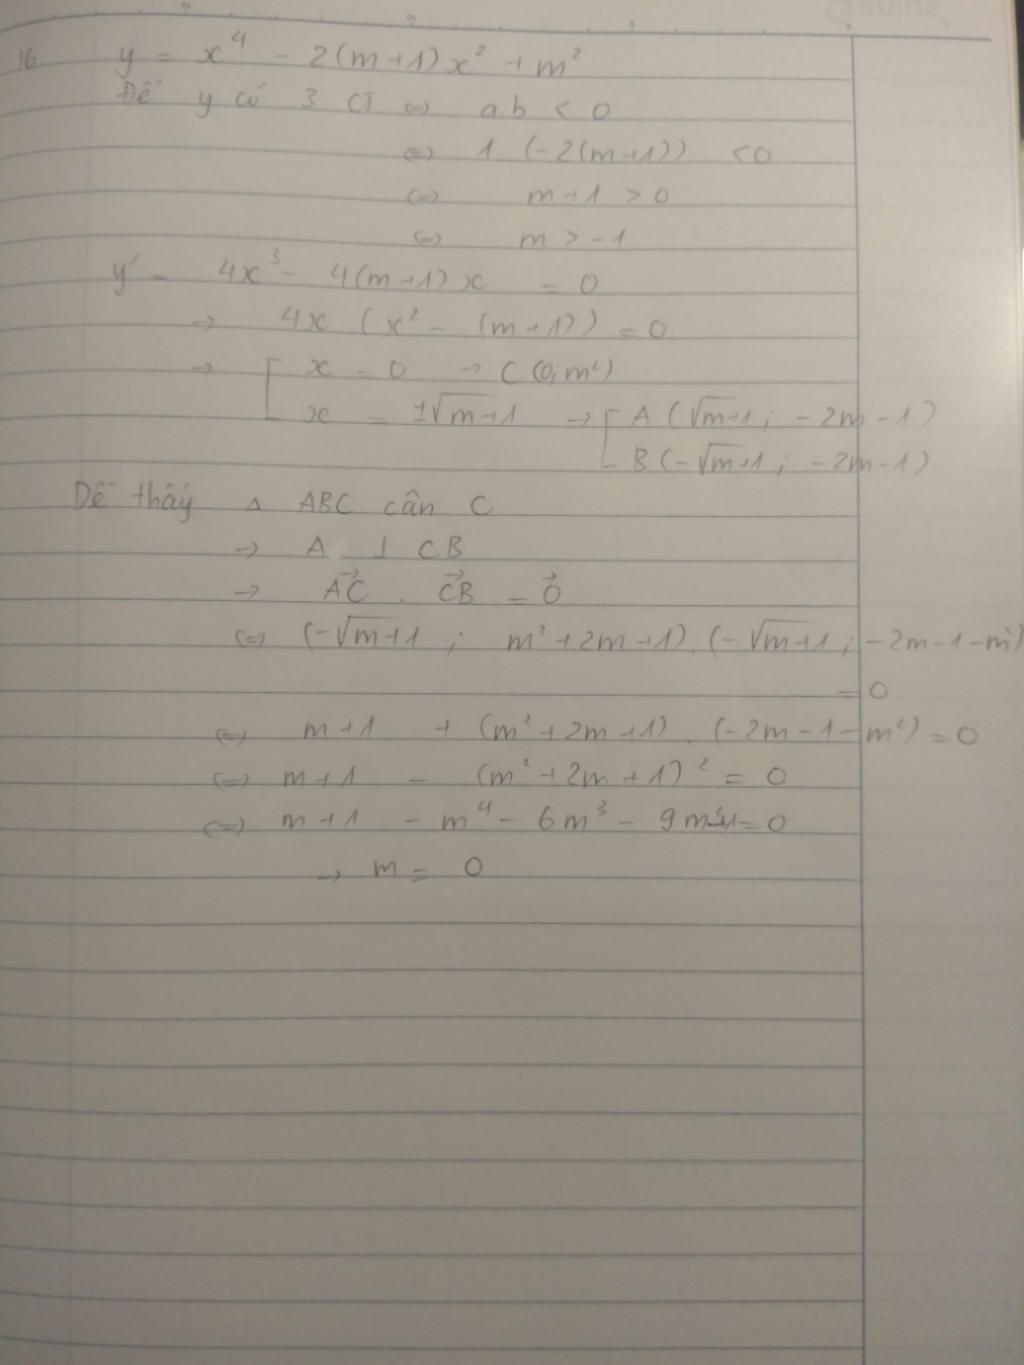 16. y = x⁴ - 2(m+1)x² + m²
Để y có 3 CT ⇔ ab < 0
⇔ 1 (-2(m+1)) < 0
⇔ m+1 > 0
⇔ m > -1
y' = 4x³ - 4(m+1)x = 0
→ 4x (x² - (m+1)) = 0
→ [ x = 0 → C (0; m²)
x = ±√m+1 → [ A (√m+1 ; -2m-1)
B (-√m+1 ; -2m-1)
Dễ thấy △ ABC cân C
→ A ⊥ CB
→ AC⃗ . CB⃗ = 0⃗
⇔ (-√m+1 ; m²+2m+1).(-√m+1 ; -2m-1-m²)
= 0
⇔ m+1 + (m²+2m+1).(-2m-1-m²) = 0
⇔ m+1 - (m²+2m+1)² = 0
⇔ m+1 - m⁴ - 6m³ - 9m = 0
→ m = 0